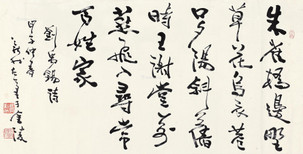 朱雀橋邊野
草花烏衣巷
口夕陽斜舊
時王謝堂前
燕飛入尋常
百姓家
劉禹錫詩
甲子仲春